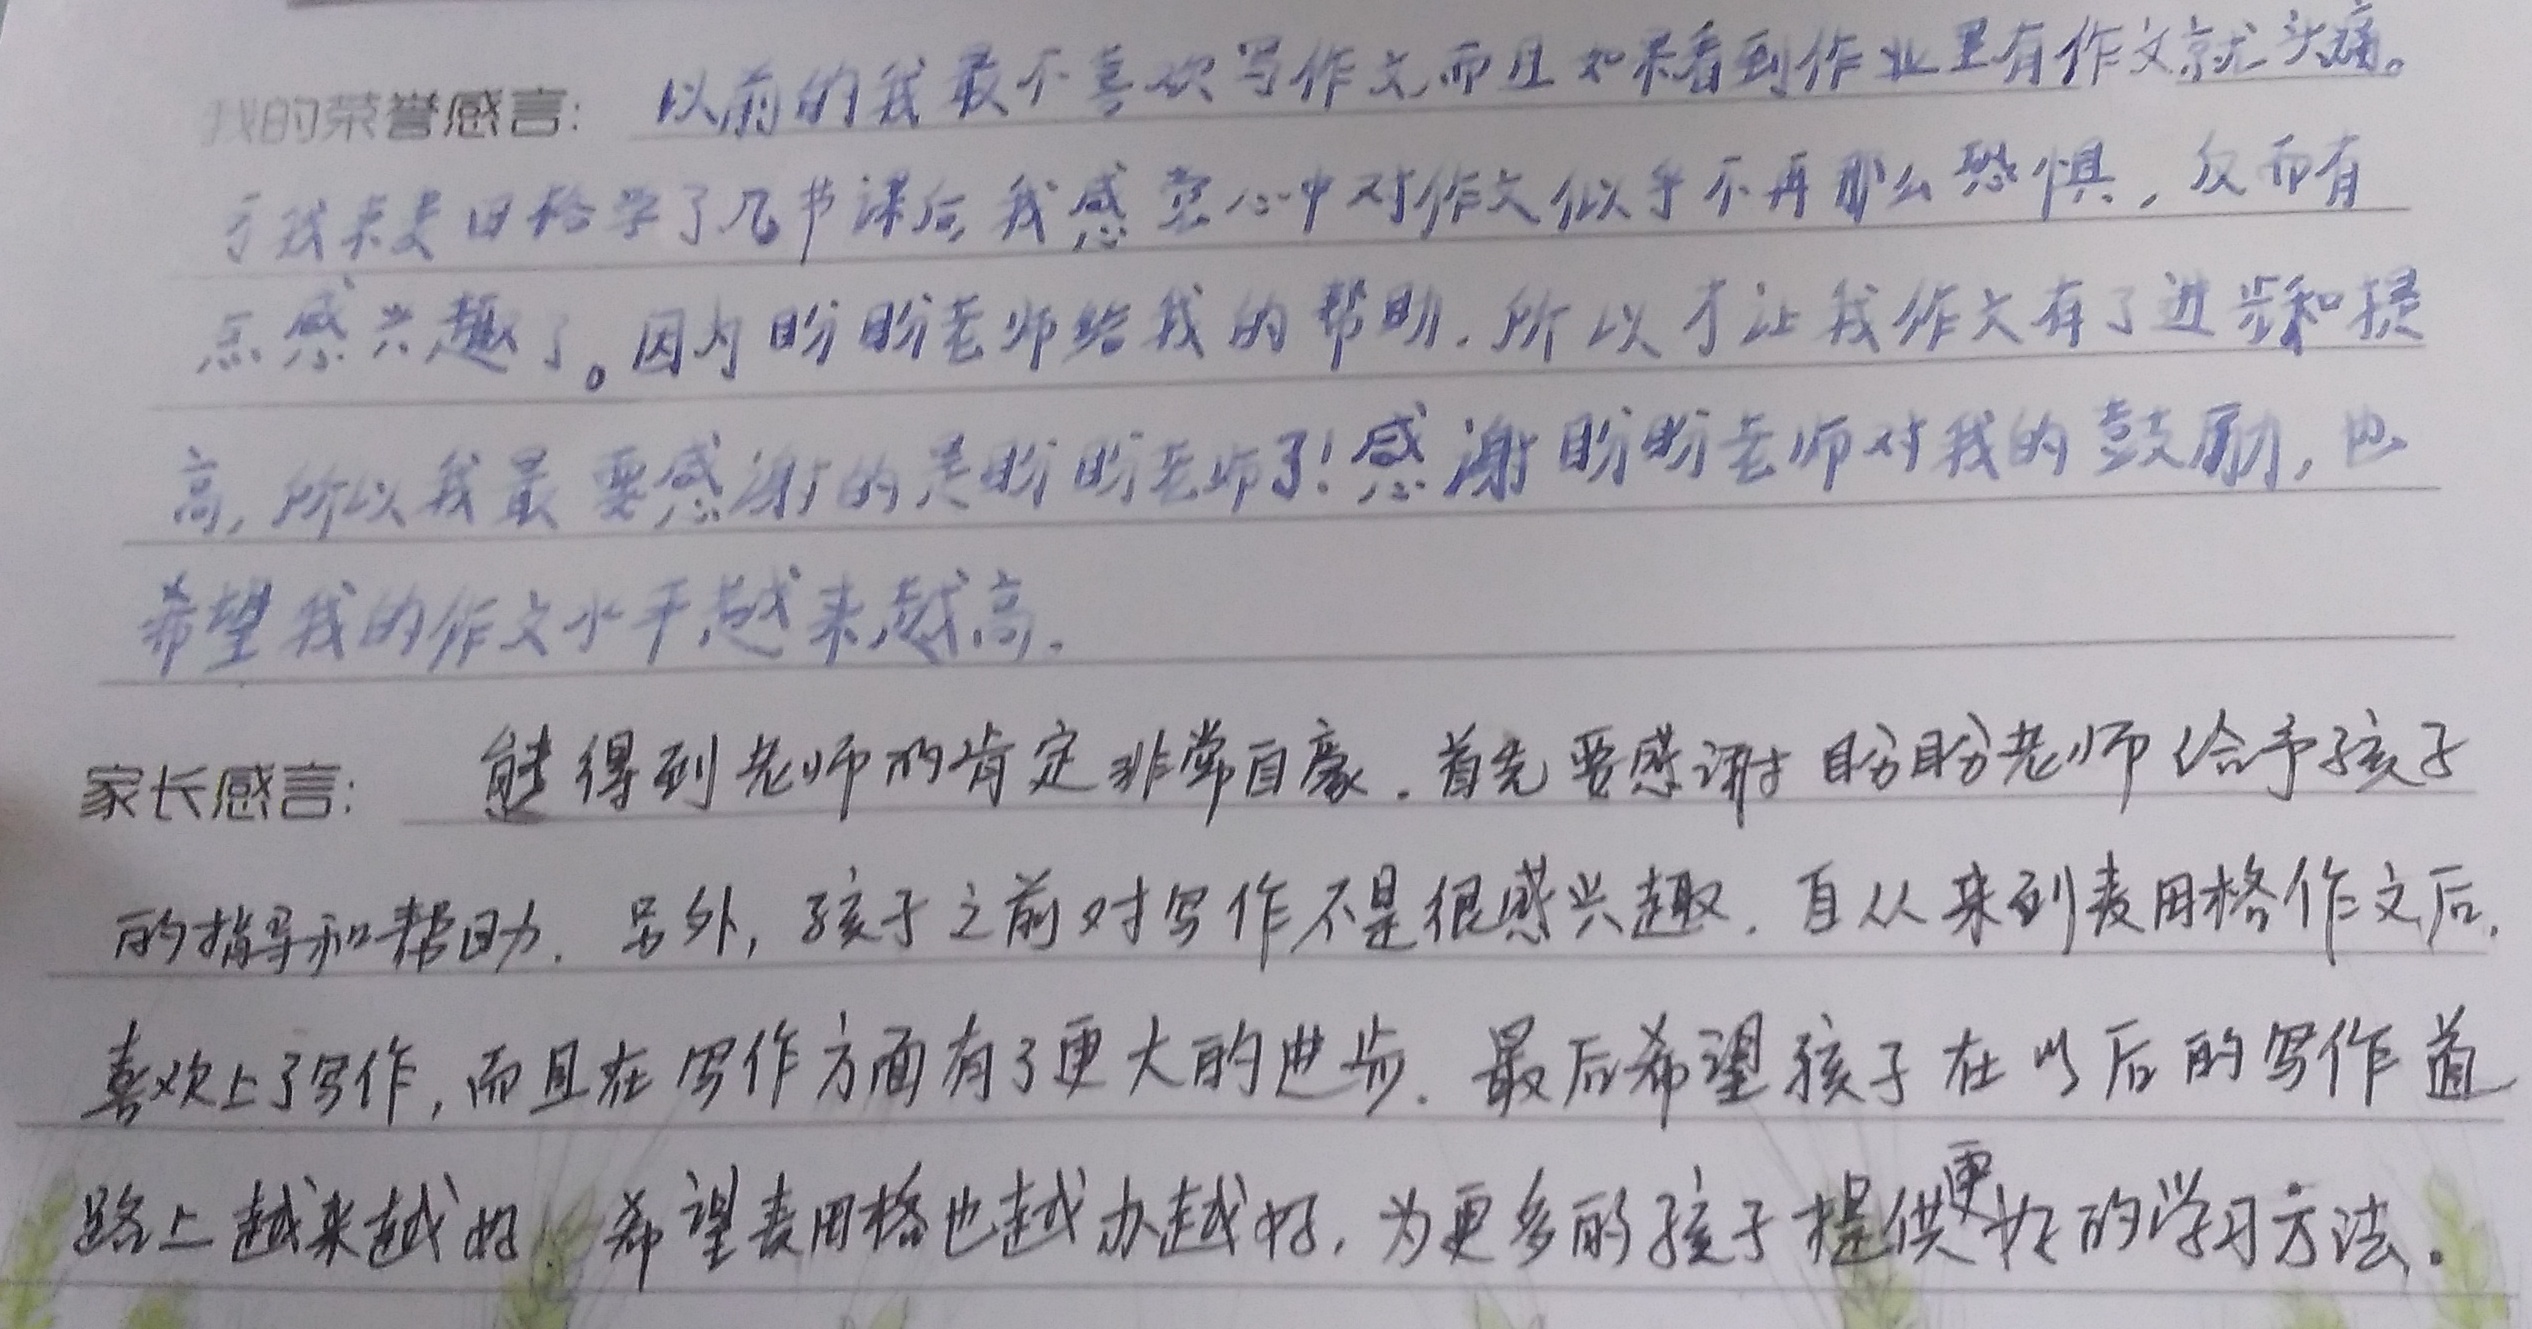 我的荣誉感言: 以前的我最不喜欢写作文而且如果看到作业里有作文就头痛。
于我来麦田格学了几节课后,我感觉心中对作文似乎不再那么恐惧,反而有
点感兴趣了。因为盼盼老师给我的帮助.所以才让我作文有了进步和提
高,所以我最要感谢的是盼盼老师了!感谢盼盼老师对我的鼓励,也
希望我的作文水平越来越高.
家长感言: 能得到老师的肯定非常自豪.首先要感谢盼盼老师给予孩子
的指导和帮助.另外,孩子之前对写作不是很感兴趣.自从来到麦田格作文后,
喜欢上了写作,而且在写作方面有了更大的进步.最后希望孩子在以后的写作道
路上越来越好.希望麦田格也越办越好,为更多的孩子提供更好的学习方法.